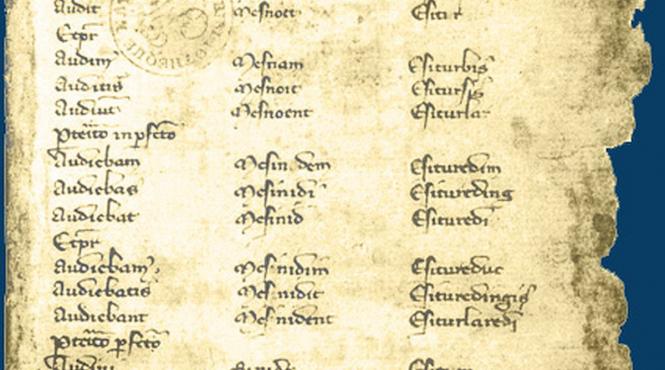 Audit mesnoet Esitir
Etpr
Audim' mesnam Esiturbis
Auditis mesnoit Esitursis
Audiut mesnoent Esiturlar
Pteito inpfcto
Audiebam mesin dem Esituredim
Audiebas mesinidi Esitureding
Audiebat mesinid Esituredi
Etpr
Audiebam', mesnidim Esitureduc
Audiebatis mesnidit Esituredingis
Audiebant mesnident Esiturlaredi
Pteito pfcto